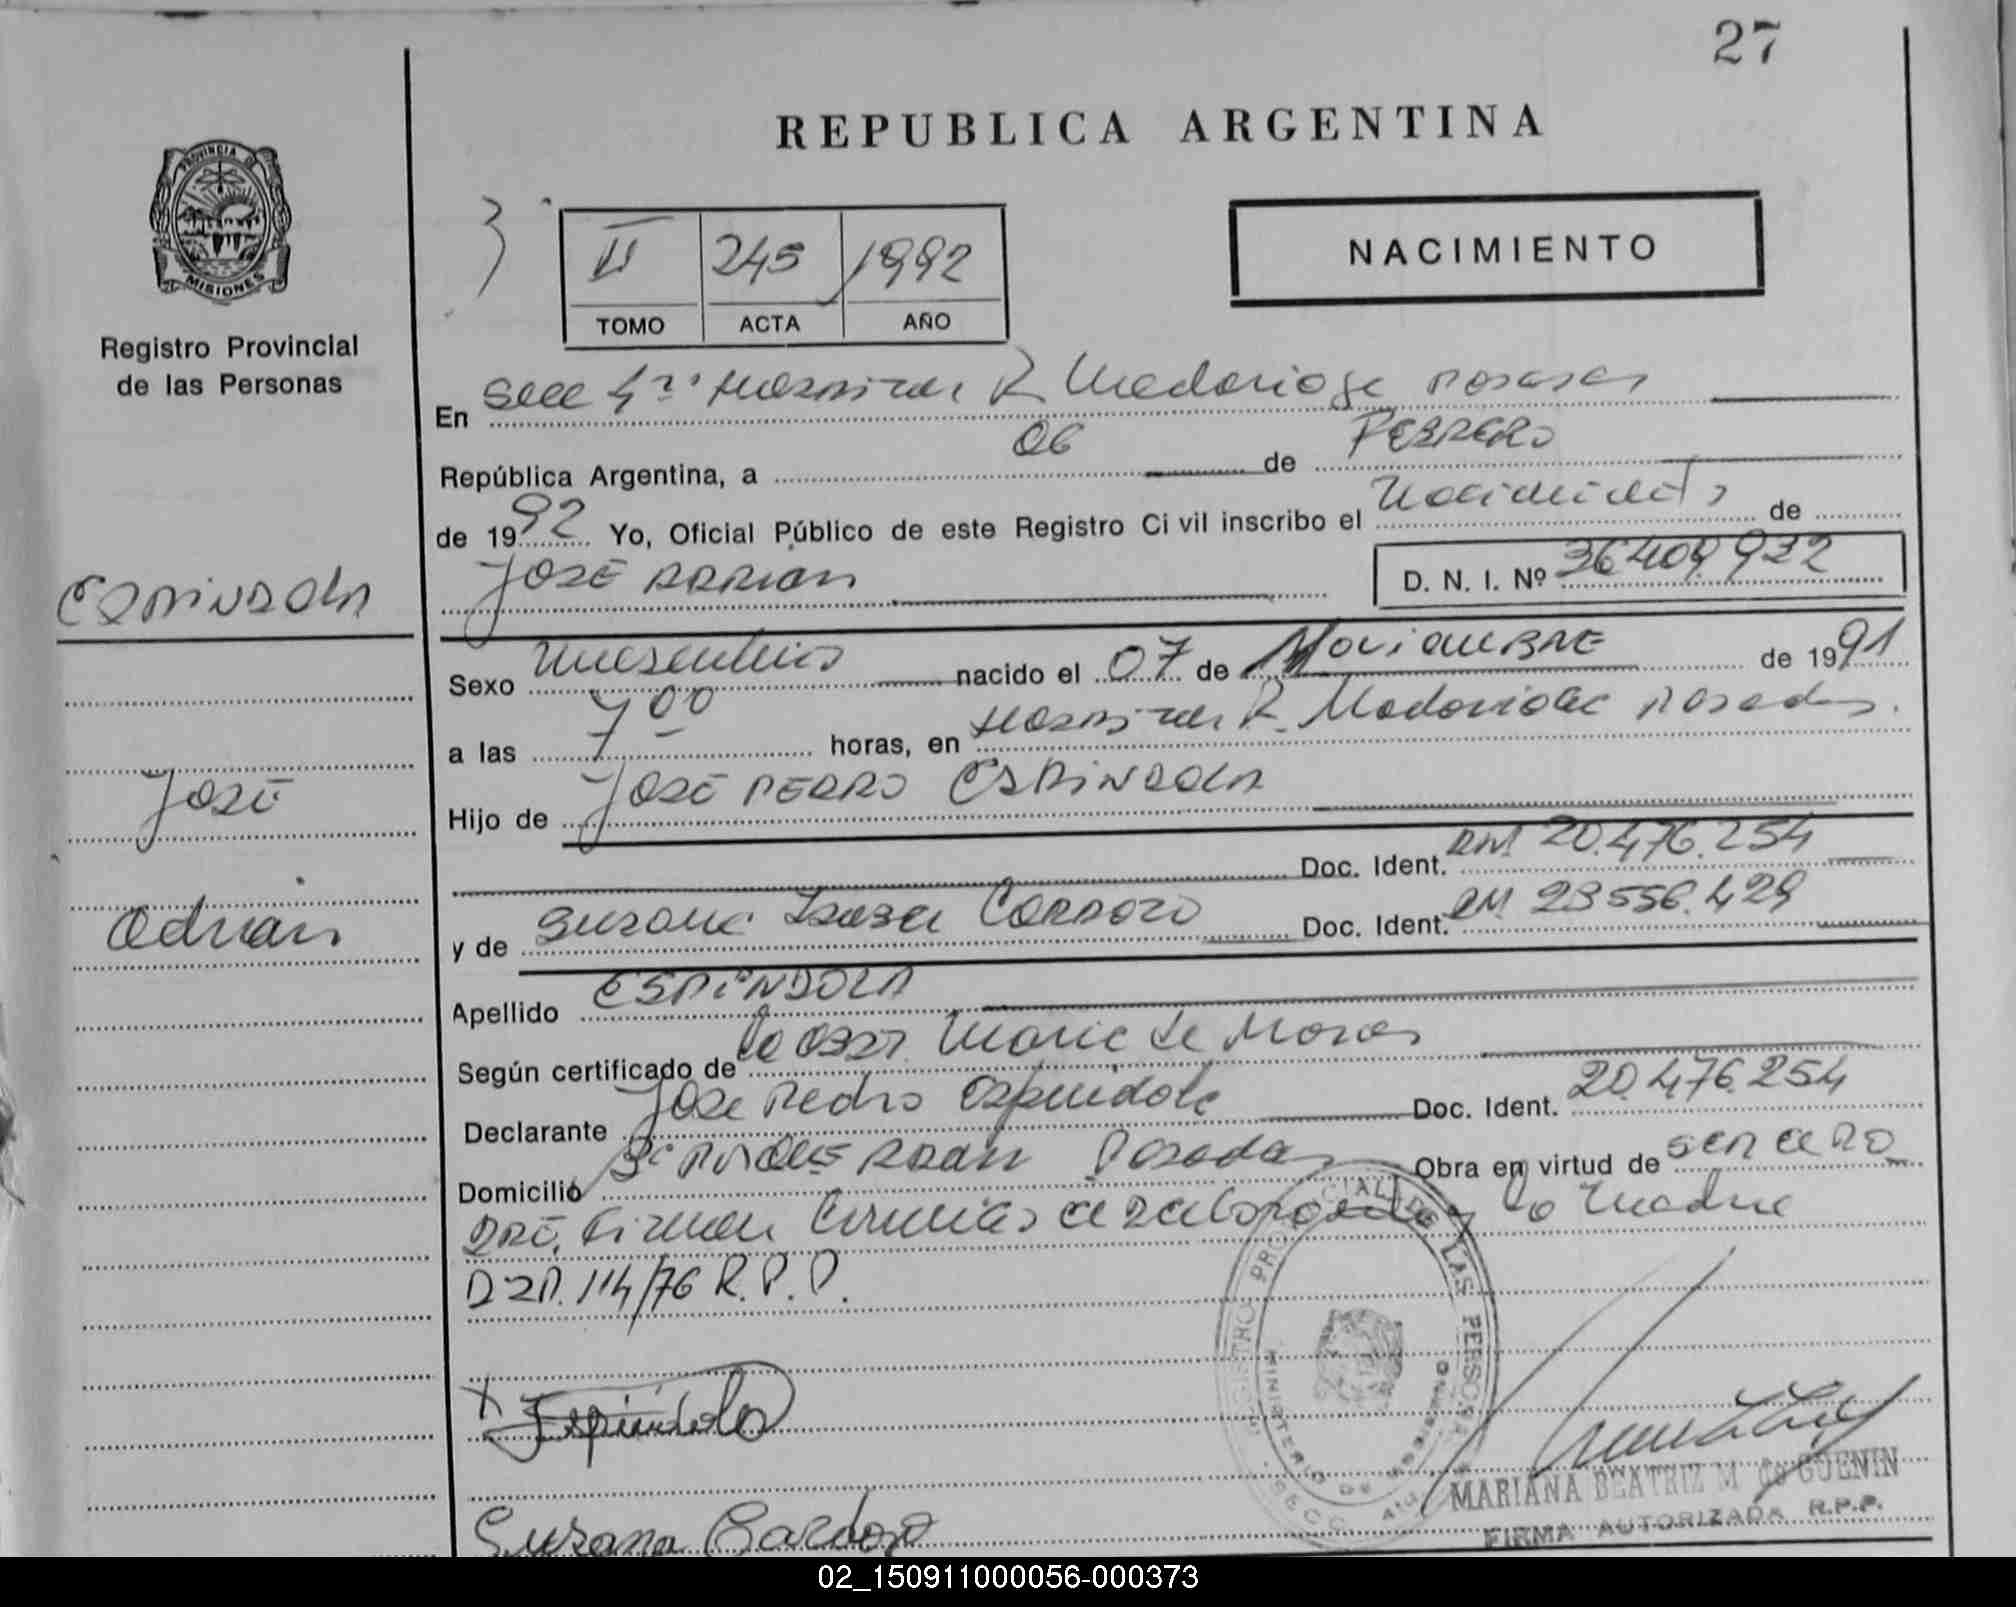 27
REPUBLICA ARGENTINA
PROVINCIA DE
MISIONES
Registro Provincial
de las Personas
NACIMIENTO
II 245 1992
TOMO ACTA AÑO
En Secc 4ta Hospital R Madariaga Posadas
República Argentina, a 06 de FEBRERO
de 1992 Yo, Oficial Público de este Registro Civil inscribo el Nacimiento de
JOSÉ ADRIAN D. N. I. Nº 36409922
ESPINDOLA
Sexo Masculino nacido el 07 de NOVIEMBRE de 1991
a las 7 00 horas, en Hospital R. Madariaga Posadas.
José
Hijo de JOSÉ PEDRO ESPINDOLA
Doc. Ident. DNI 20.476.254
Adrián
y de Susana Isabel Cardozo Doc. Ident. DNI 23556.429
Apellido ESPINDOLA
Según certificado de la Obst. Maria de Moras
Declarante José Pedro Espindola Doc. Ident. 20.476.254
Domicilio Posadas Obra en virtud de ser el PA
DRE, Firman la Madre
DZP. 114/76 R.P.P.
REGISTRO PROVINCIAL DE LAS PERSONAS
MINISTERIO DE GOBIERNO
SECC.
Espindola
MARIANA BEATRIZ M de GUENIN
FIRMA AUTORIZADA R.P.P.
Susana Cardozo
02_150911000056-000373